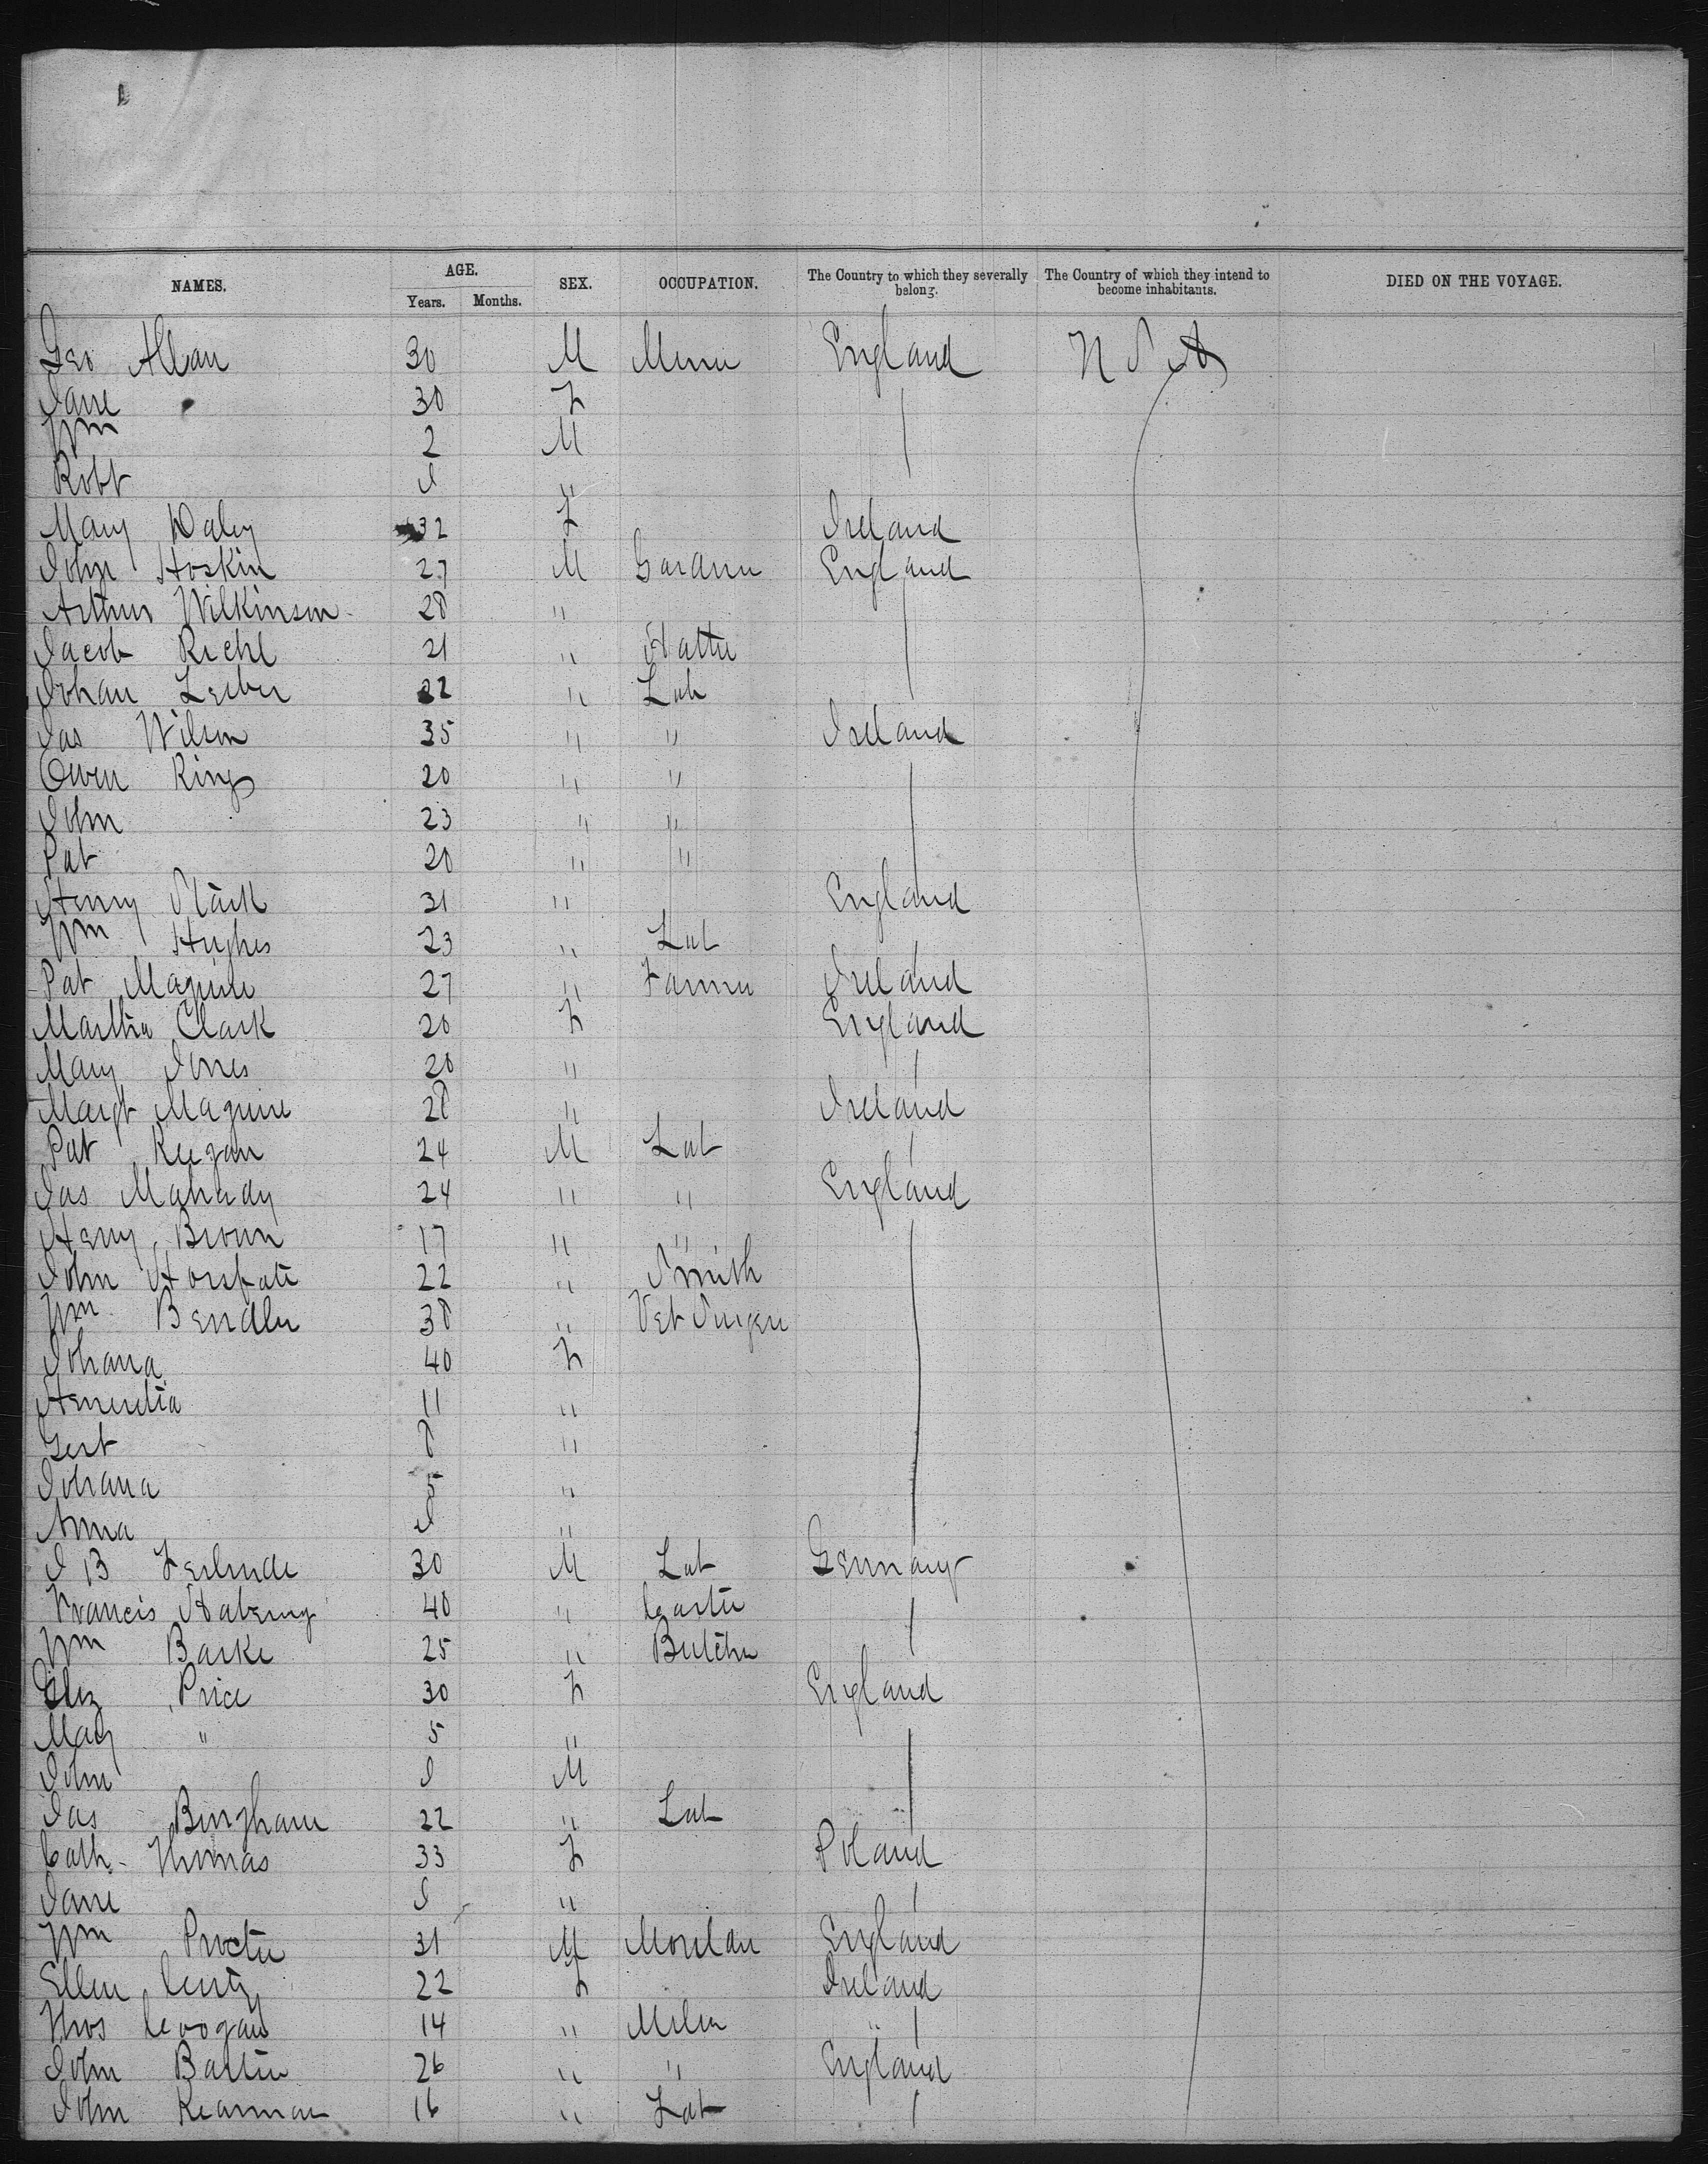 NAMES. AGE. Years. Months. SEX. OCCUPATION. The Country to which they severally belong. The Country of which they intend to become inhabitants. DIED ON THE VOYAGE.
Geo Allan 30 M Miner England U S A
Jane 30 F
Wm 2 M
Robt I "
Mary Daley 32 F Ireland
John Hoskin 27 M Gardner England
Arthur Wilkinson 28 "
Jacob Riehl 21 " Hatter
Johan Leiber 22 " Lab
Jas Wilson 35 " " Ireland
Owen King 20 " "
John 23 " "
Pat 20 " "
Henry Stark 31 " England
Wm Hughes 23 " Lab
Pat Maguire 27 " Farmer Ireland
Martha Clark 20 F England
Mary Jones 20 "
Margt Maguire 28 " Ireland
Pat Keegan 24 M Lab
Jas Mahady 24 " " England
Henry Brown 17 " "
John 22 " Smith
Wm Bendler 38 " Vet Surgen
Johana 40 F
11 "
Gert 8 "
Johana 5 "
Anna I "
J B 30 M Lab Germany
Francis 40 " Carter
Wm Barke 25 " Butcher
Eliz Price 30 F England
Mary " 5 "
John I M
Jas Bingham 22 " Lab
Cath. Thomas 33 F Poland
Jane I "
Wm Procter 31 M England
Ellen 22 F Ireland
Thos Coogan 14 " Miler "
John 26 " " England
John Kearman 16 " Lab